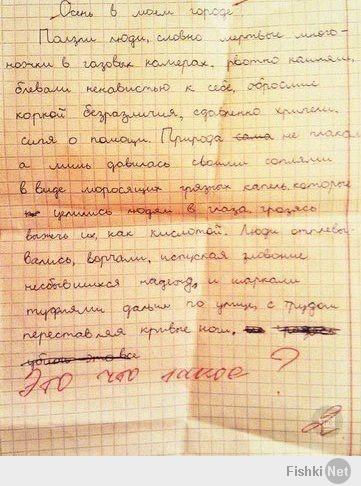 Осень в моем городе.
Ползли люди, словно мертвые много-
ножки в газовых камерах, рвотно кашляли,
блевали ненавистью к себе, обросшие
коркой безразличия, сдавленно хрипели,
сипя о помощи. Природа сама не плакала,
а лишь давилась своими соплями
в виде моросящих грязных капель, которые
целились людям в глаза, грозясь
выжечь их, как кислотой. Люди отплевы-
вались, ворчали, испуская зловоние
несбывшихся надежд, и шаркали
туфлями дальше по улице, с трудом
переставляя кривые ноги.
убили это все
Это что такое?
2
Fishki.Net